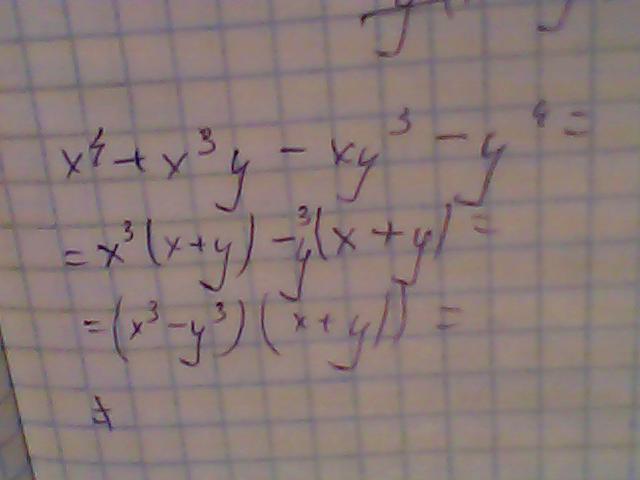 x⁴ + x³y - xy³ - y⁴ =
= x³(x+y) - y³(x+y) =
= (x³ - y³)(x+y)) =
=